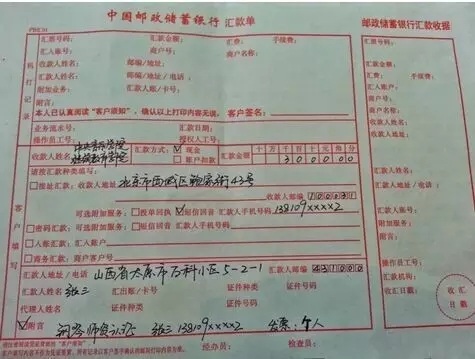 中国邮政储蓄银行 汇款单
邮政储蓄银行汇款收据
汇票号码: 汇款金额: 汇费: 手续费:
汇票号码:
汇入账号: 商户号: 商户名称:
汇款金额:
收款人姓名: 邮编/地址:
汇费: 手续费:
汇款人姓名: 邮编/地址/电话:
附加业务: 汇款人账/卡号:
收款人姓名:
附言:
收款人地址:
本人已认真阅读“客户须知”,确认以上打印内容无误。 客户签名:
业务流水号: 汇款日期:
操作员工号: 授权人工号:
收款人姓名 中央音乐学院
汇款方式: ✓现金 账户扣款
汇款金额 十万千百十元角分
300000
请按汇款种类填写:
按址汇款: 收款人地址: 北京市西城区鲍家街43号
收款人邮编 100031
可选附加服务: 投单回执 ✓短信回音 汇款人手机号码 138109xxxx2
密码汇款 可选附加服务: 短信回音 汇款人手机号码
入账汇款: 汇入账户
商务汇款: 商户号 商户名称
汇款人地址/电话 山西省太原市万科小区5-2-1
汇款人邮编 431000
汇款人姓名 张三 汇出账/卡号 证件种类 证件号码
代理人姓名 证件种类 证件号码
✓附言 张三 138109xxxx2 发票:个人
经办员: 复核员:
客户填写
操作员工号:
汇款机构:
收汇日期:
收汇日戳